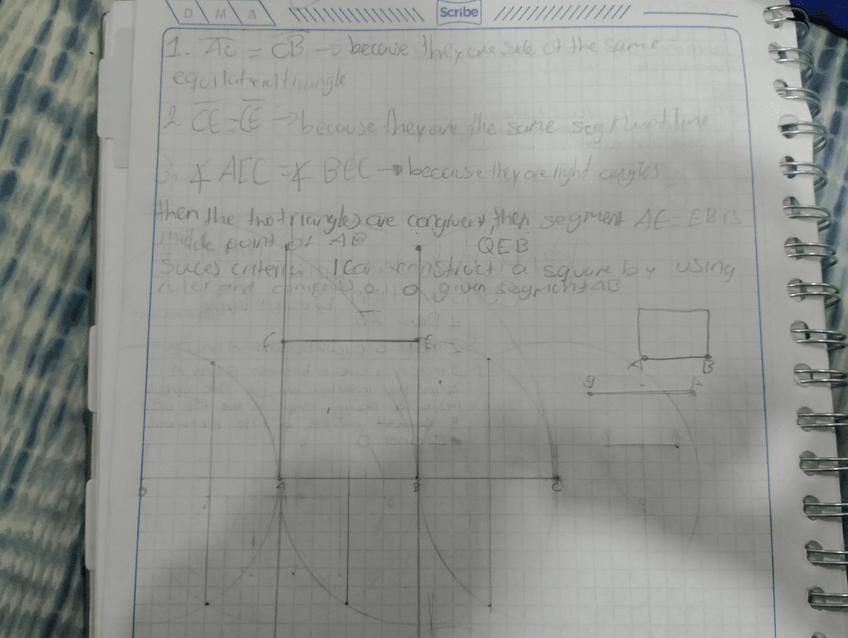 D M A
Scribe
1. AC = CB → because they are side of the same
equilateral triangle
2. CE = CE → because they are the same segment line
3. ∡ AEC = ∡ BEC → because they are right angles
then the two triangles are congruent, then segment AE = EB is
middle point of AB
QEB
Succes criteria I can construct a square by using
ruler and a given segment AB
E
A B
A B C